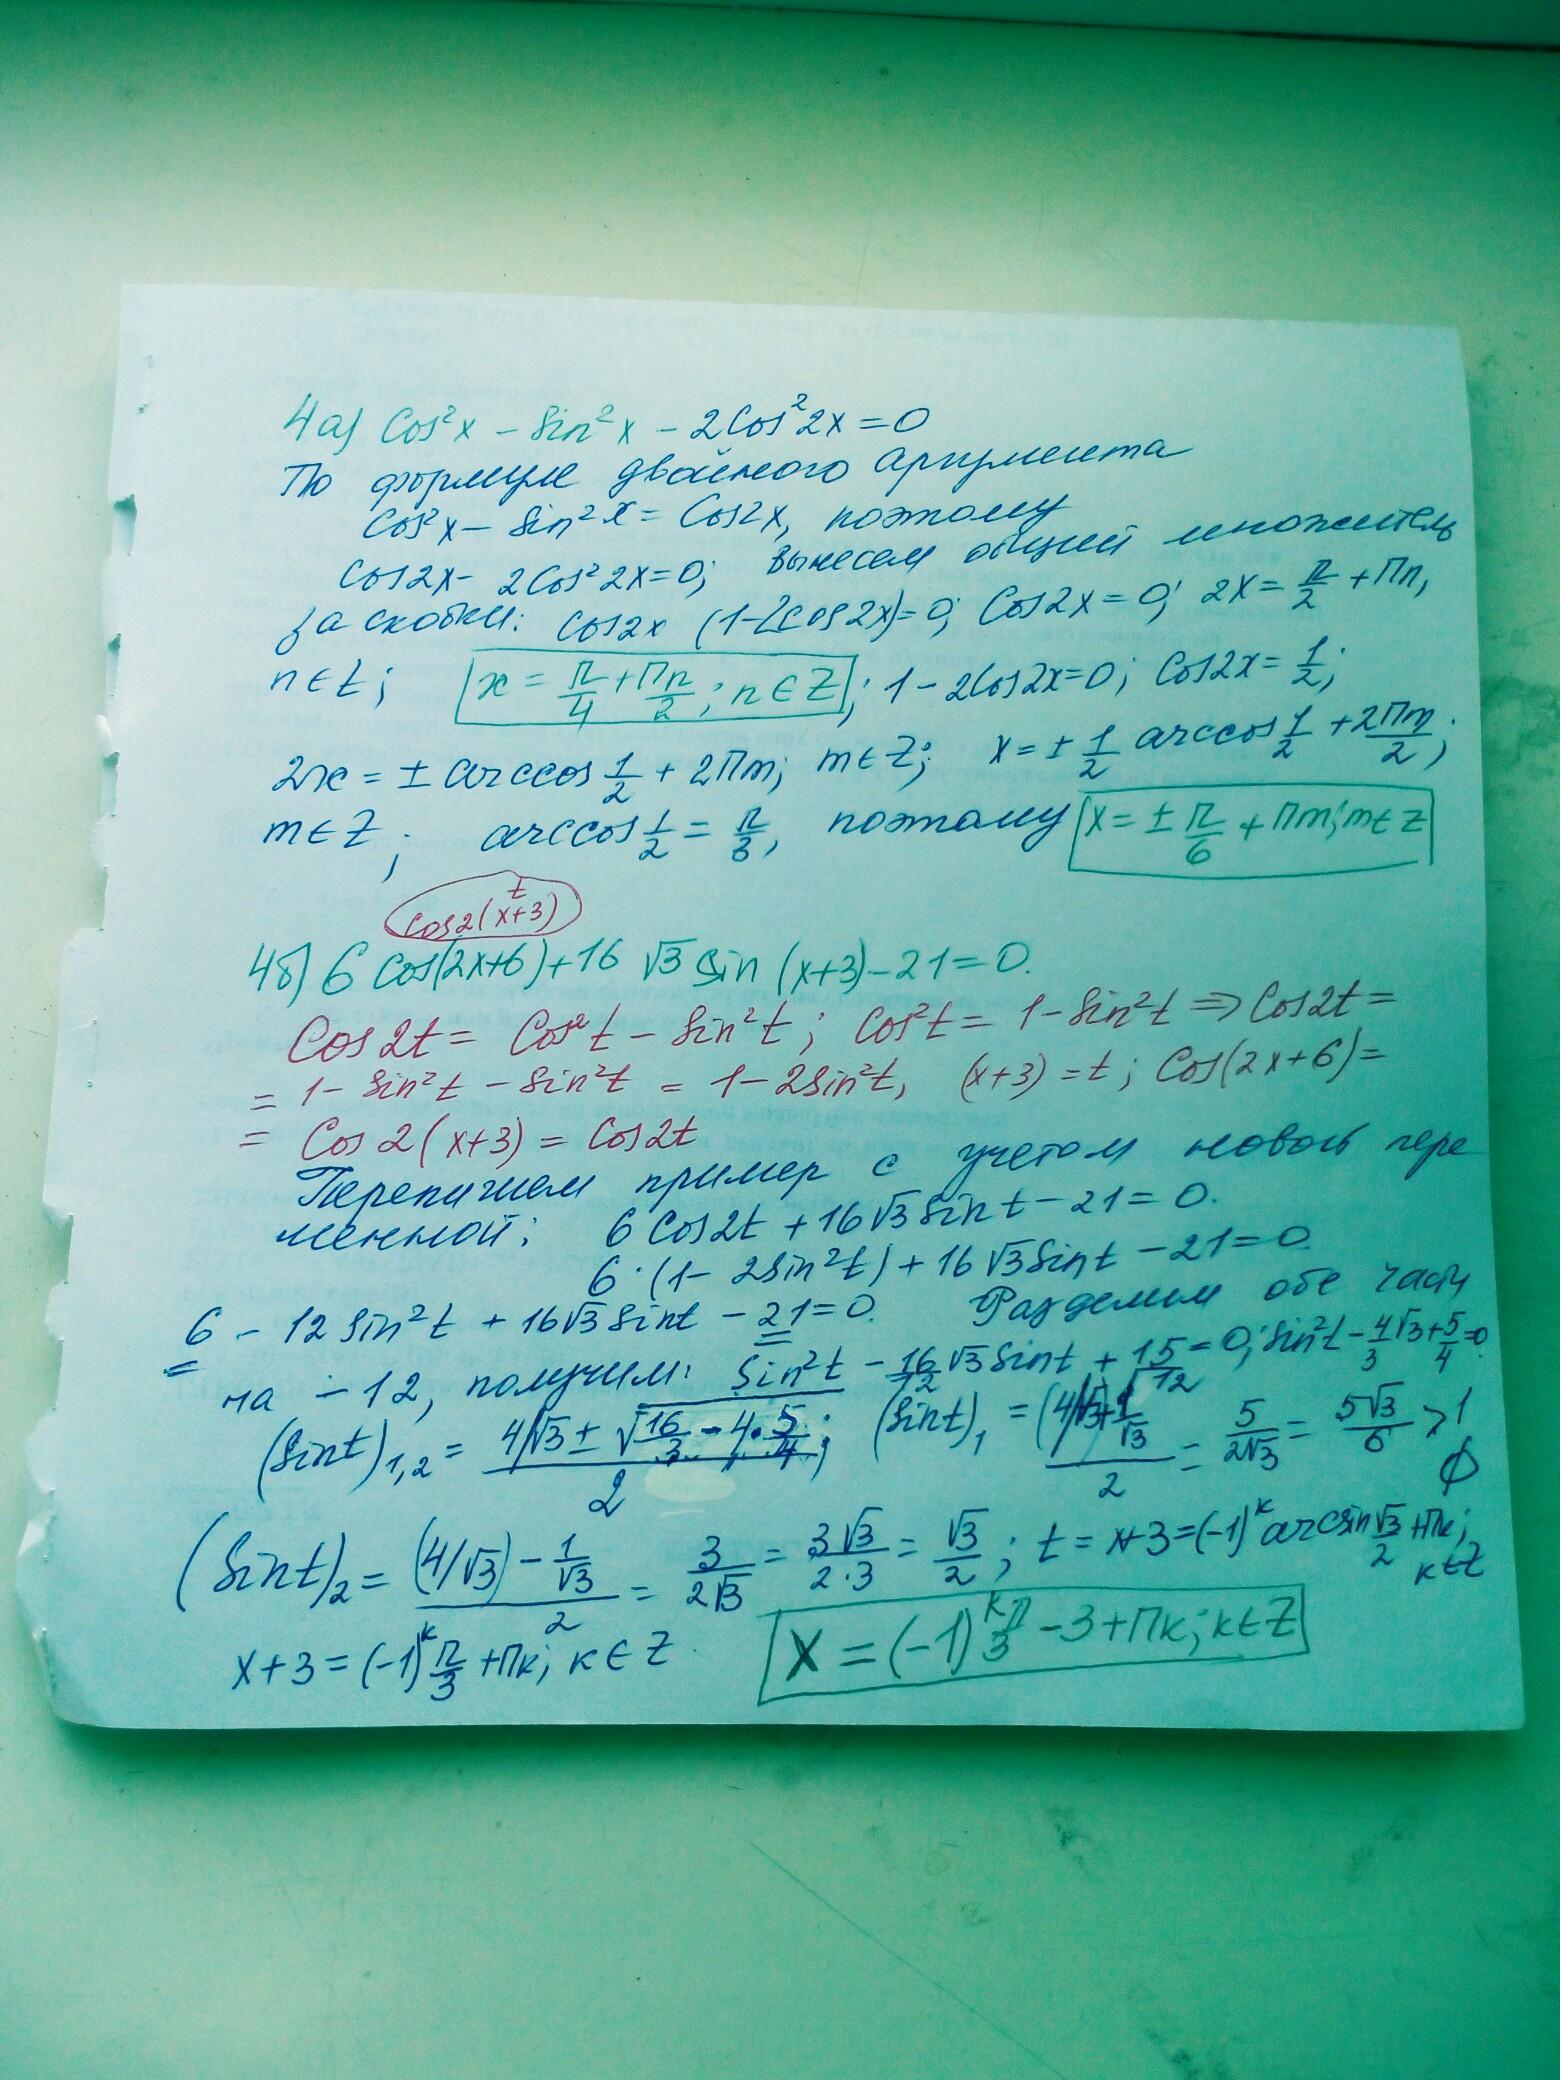 4а) Cos²x – Sin²x – 2Cos²2x = 0
По формуле двойного аргумента
Cos²x – Sin²x = Cos2x, поэтому
Cos2x – 2Cos²2x = 0; вынесем общий множитель
за скобки: Cos2x (1–2Cos2x) = 0; Cos2x = 0; 2x = π/2 + πn,
n ∈ Z; x = π/4 + πn/2; n ∈ Z; 1 – 2Cos2x = 0; Cos2x = 1/2;
2x = ± arccos 1/2 + 2πm; m ∈ Z; x = ± 1/2 arccos 1/2 + 2πm/2;
m ∈ Z; arccos 1/2 = π/3, поэтому x = ± π/6 + πm; m ∈ Z
t
Cos2(x+3)
4б) 6 Cos(2x+6) + 16 √3 Sin (x+3) – 21 = 0.
Cos2t = Cos²t – Sin²t; Cos²t = 1 – Sin²t ⇒ Cos2t =
= 1 – Sin²t – Sin²t = 1 – 2Sin²t, (x+3) = t; Cos(2x+6) =
= Cos 2(x+3) = Cos2t
Перепишем пример с учетом новой пере
менной: 6 Cos2t + 16√3 Sint – 21 = 0.
6·(1 – 2Sin²t) + 16√3 Sint – 21 = 0.
6 – 12 Sin²t + 16√3 Sint – 21 = 0. Разделим обе части
на –12, получим: Sin²t – 16/12 √3 Sint + 15/12 = 0; Sin²t – 4/3 √3 + 5/4 = 0
(Sint)₁,₂ = (4/√3 ± √(16/3 – 4·5/4))/2; (Sint)₁ = (4/√3 + 1/√3)/2 = 5/2√3 = 5√3/6 > 1 ∅
(Sint)₂ = ((4/√3) – 1/√3)/2 = 3/2√3 = 3√3/2·3 = √3/2; t = x+3 = (–1)ᵏ arcsin √3/2 + πk; k ∈ Z
x+3 = (–1)ᵏ π/3 + πk; k ∈ Z. x = (–1)ᵏ π/3 – 3 + πk; k ∈ Z